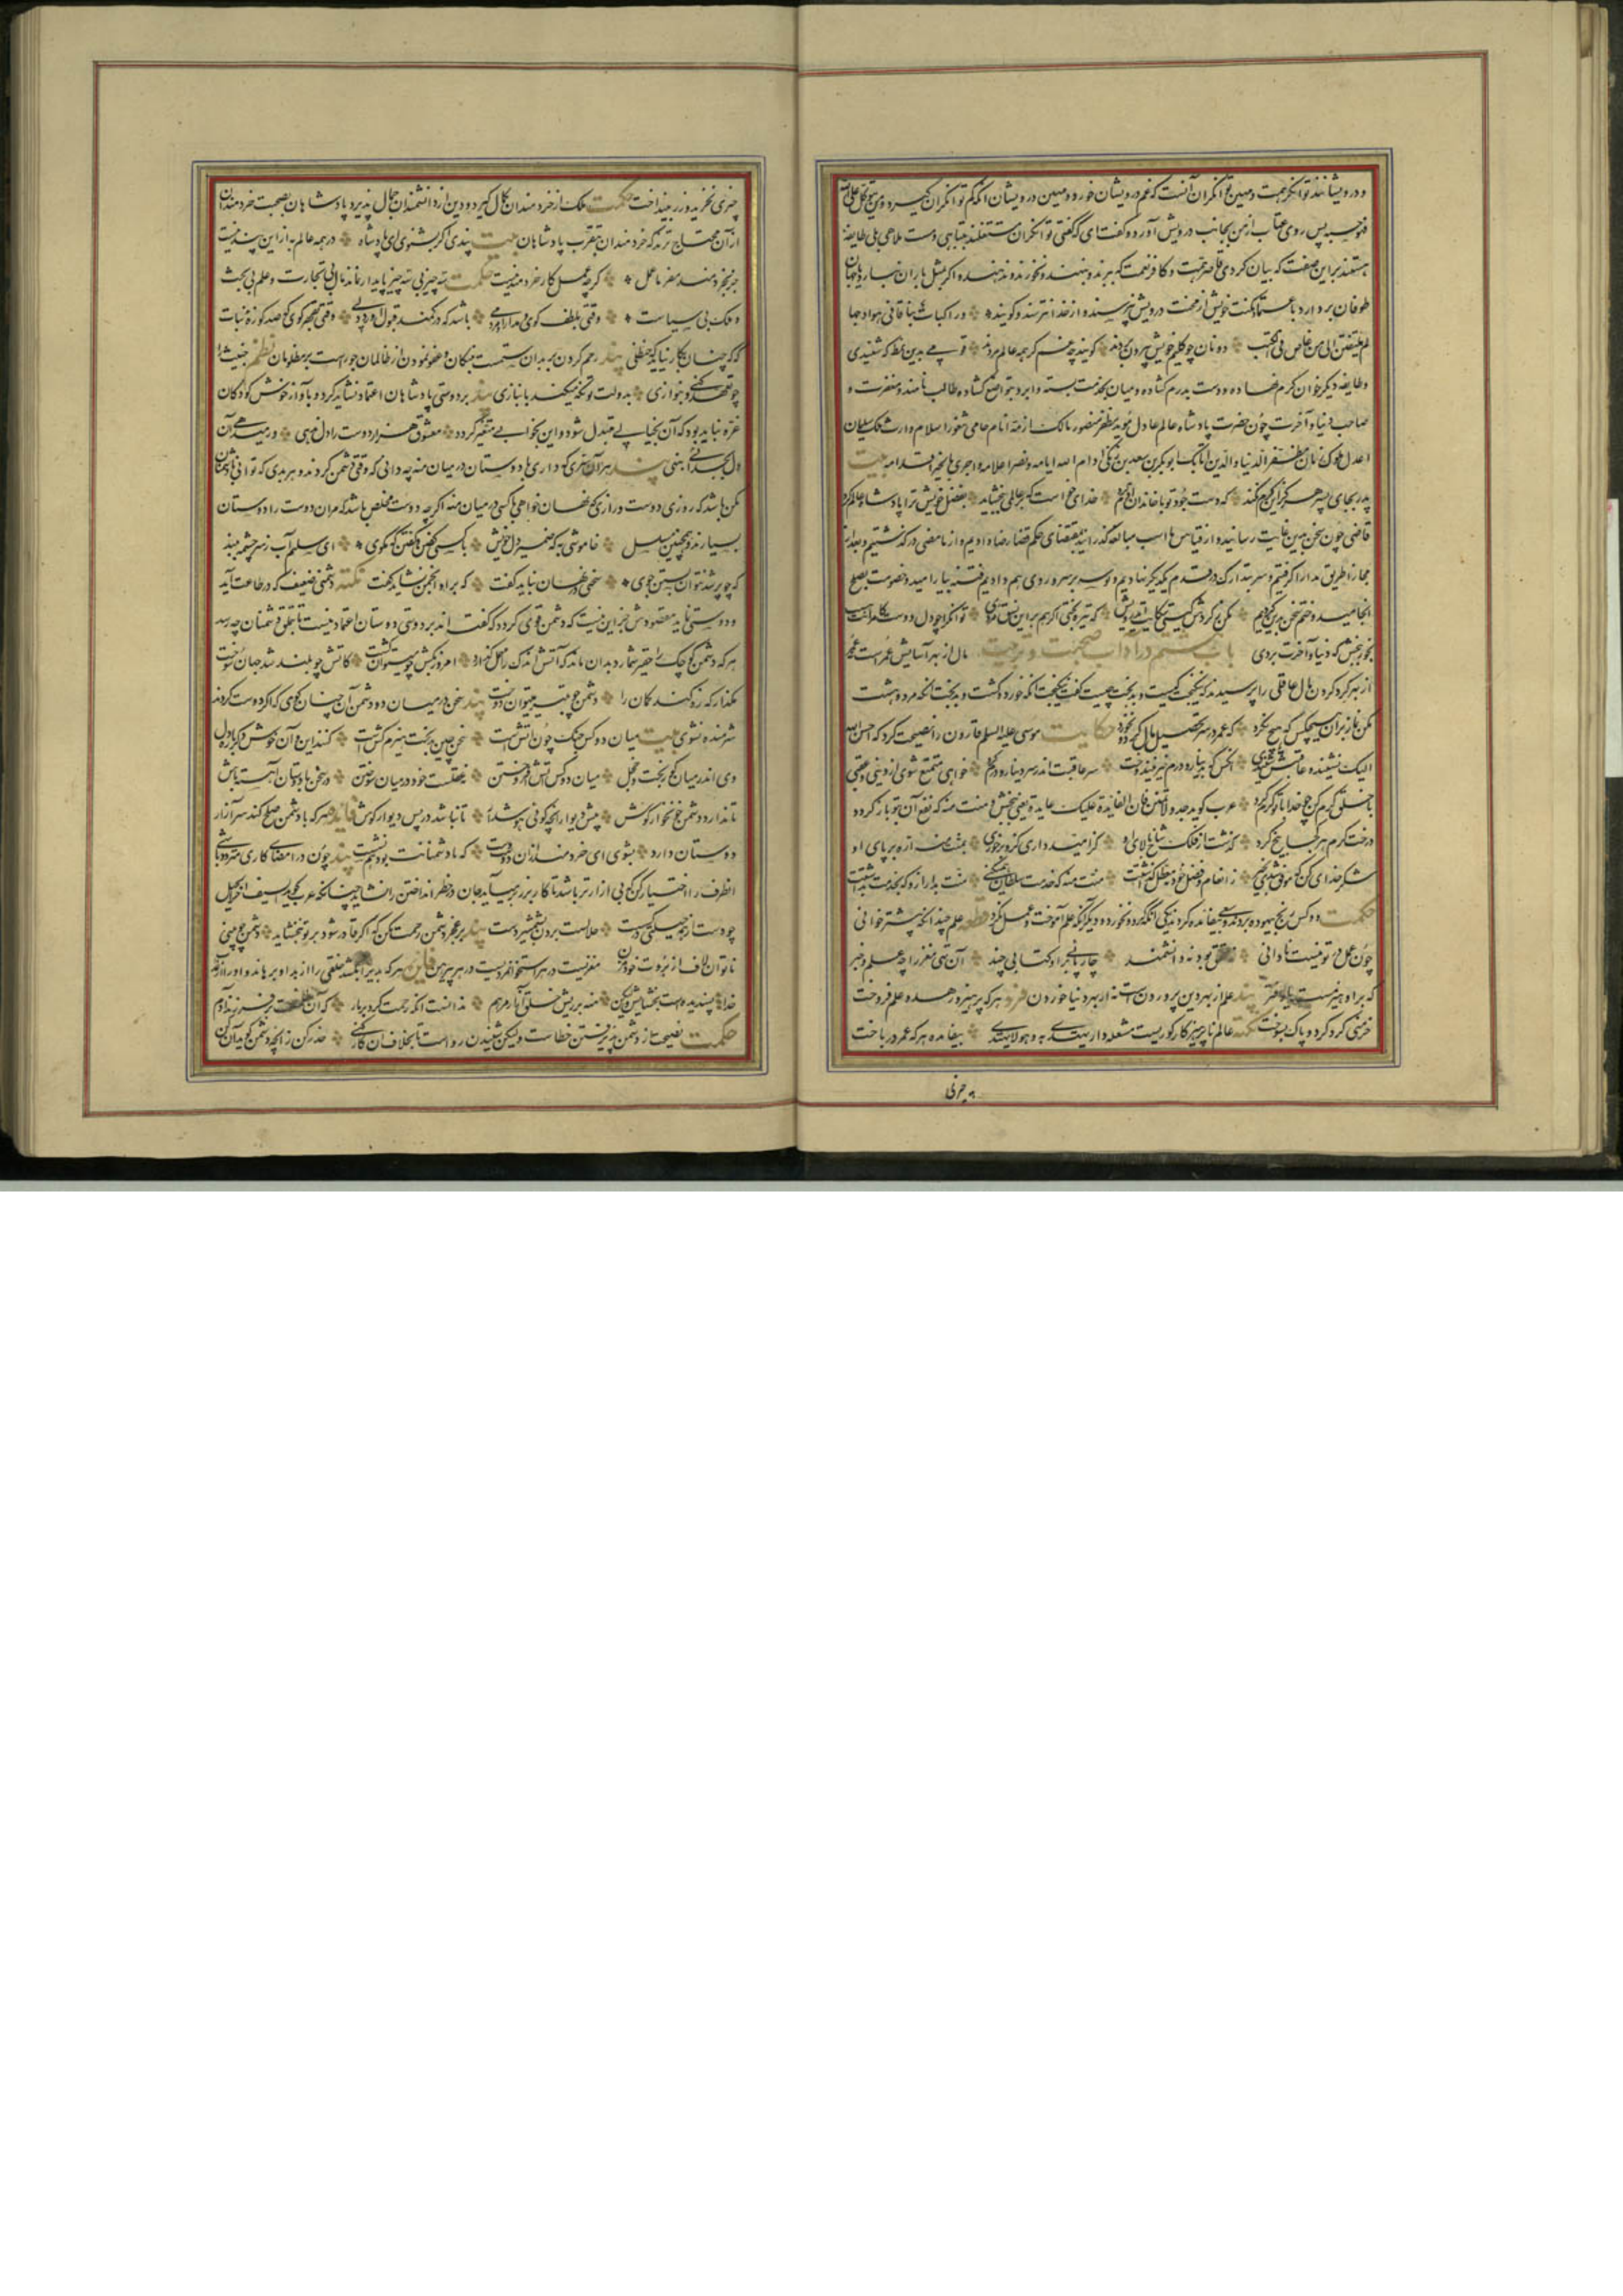 و درویشانند توانگر همت و مهین توانگران آنست که غم درویشان خورد و مهین درویشان آنکه کم توانگران گیرد و من یتوکل علی الله
فهو حسبه پس روی عتاب از من بجانب درویش آورد و گفت ای که گفتی توانگران مشتغلند بتباهی و مست ملاهی بلی طایفه
هستند براین صفت که بیان کردی قاصر همت و کافر نعمت که ببرند و بنهند و نخورند و ندهند و اگر بمثل باران نبارد یا جهان
طوفان بردارد باعتماد مکنت خویش از محنت درویش نپرسند و از خدا نترسند و گویند و راکبات نیاقا فی هوادجها
لم یلتفتن الی من غاص فی الکثب دونان چو گلیم خویش بیرون بردند گویند چه غم گر همه عالم مردند قومی بدین نمط که شنیدی
و طایفه دیگر خوان کرم نهاده و دست بکرم گشاده و میان بخدمت بسته و ابرو بتواضع گشاده طالب نامند و مغفرت و
صاحب دنیا و آخرت چون حضرت پادشاه عالم عادل مؤید مظفر منصور مالک ازمه انام حامی ثغور اسلام وارث ملک سلیمان
اعدل ملوک زمان مظفر الدنیا والدین اتابک ابوبکر بن سعد بن زنگی ادام الله ایامه ونصر اعلامه و اجری بالخیر اقلامه بیت
پدر بجای پسر هرگز این کرم نکند که دست جود تو با خاندان آدم خدای خواست که بر عالمی ببخشاید بفضل خویش ترا پادشاه عالم کرد
قاضی چون سخن بدین غایت رسانید و از قیاس ما اسب مبالغه گذرانید بمقتضای حکم قضا رضا دادیم و از ما مضی درگذشتیم و بعد از
مجارا طریق مدارا گرفتیم و سر بتدارک در قدم یکدیگر نهادیم و بوسه بر سر و روی هم دادیم فتنه بیارامید و خصومت بصلح
انجامید و ختم سخن بدین کردیم مکن ز گردش گیتی شکایت ای درویش که تیره بختی اگر هم براین نسق مردی توانگرا چو دل و دست کامرانت هست
بخور ببخش که دنیا و آخرت بردی باب هشتم در آداب صحبت و تربیت مال از بهر آسایش عمرست نه عمر
از بهر گرد کردن مال عاقلی را پرسیدند که نیکبخت کیست و بدبخت چیست گفت نیکبخت آنکه خورد و کشت و بدبخت آنکه مرد و هشت
مکن نماز بران هیچکس که هیچ نکرد که عمر در سر تحصیل مال کرد و نخورد حکایت موسی علیه السلم قارون را نصیحت کرد که احسن الله
الیک نشنید و عاقبتش شنیدی آنکس که بدینار و درم خیر نیندوخت سر عاقبت اندر سر دینار و درم کرد خواهی متمتع شوی از دنیی و عقبی
با خلق کرم کن چو خدا با تو کرم کرد عرب گوید جد ولا تمنن فان الفایدة علیک عایدة یعنی ببخش و منت منه که نفع آن بتو باز گردد
درخت کرم هر کجا بیخ کرد گذشت از فلک شاخ و بالای او گر امیدواری کزو بر خوری بمنت منه اره بر پای او
شکر خدای کن که موفق شدی بخیر ز انعام و فضل خود نه معطل گذاشتت منت منه که خدمت سلطان همی کنی منت بدار ازو که بخدمت بداشتت
حکمت دو کس رنج بیهوده بردند و سعی بیفایده کردند یکی آنکه گرد کرد و نخورد و دیگر آنکه علم آموخت و عمل نکرد علم چندانکه بیشتر خوانی
چون عمل در تو نیست نادانی نه محقق بود نه دانشمند چارپایی برو کتابی چند آن تهی مغز را چه علم و خبر
که براو هیزمست یا دفتر پند علم از بهر دین پروردنست نه از بهر دنیا خوردن فرد هر که پرهیز و زهد و علم فروخت
خرمنی گرد کرد و پاک بسوخت نکته عالم ناپرهیزگار کوریست مشعله دار یهدی به و هو لا یهتدی بیفایده هر که عمر درباخت
چیزی
چیزی نخرید و زر بینداخت حکمت ملک از خردمندان کمال گیرد و دین از دانشمندان جمال پذیرد پادشاهان بصحبت خردمندان
ازآن محتاج ترند که خردمندان بتقرب پادشاهان بیت پندی اگر بشنوی ای پادشاه در همه عالم به ازاین پند نیست
جز بخردمند مفرما عمل گرچه عمل کار خردمند نیست حکمت سه چیز بی سه چیز پایدار نماند مال بی تجارت و علم بی بحث
و ملک بی سیاست وقتی بلطف گوی و مدارا و مردمی باشد که در کمند قبول آوری دلی وقتی بقهر گوی که صد کوزه نبات
گه گه چنان بکار نیاید که حنظلی پند رحم کردن بر بدان ستمست بر نیکان و عفو نمودن از ظالمان جورست بر مظلومان نظم خبیث را
چو تعهد کنی و بنوازی بدولت تو نگه میکند بانبازی پند بر دوستی پادشاهان اعتماد نشاید کرد و بآواز خوش کودکان
غره نباید بود که آن بخیالی مبدل شود و این بخوابی متغیر گردد معشوق هزار دوست را دل ندهی ور میدهی آن
دل بجدائی بنهی پند هر آن سری که داری با دوستان در میان منه چه دانی که وقتی دشمن گردند و هر بدی که توانی با دشمنان
مکن باشد که روزی دوست گردند رازی که نهان خواهی با کسی در میان منه اگرچه دوست مخلص باشد که مران دوست را دوستان
بسیارند و همچنین مسلسل خاموشی به که ضمیر دل خویش با کسی گفتن و گفتن که مگوی ای سلیم آب ز سر چشمه ببند
که چو پر شد نتوان بستن جوی سخنی در نهان نباید گفت که براو انجمن نشاید گفت نکته دشمنی ضعیف که در طاعت آید
و دوستی نماید مقصودش جز این نیست که دشمن قوی گردد که گفته اند بر دوستی دوستان اعتماد نیست تا بتملق دشمنان چه رسد
هر که دشمن کوچک را حقیر شمارد بدان ماند که آتش اندک را مهمل گذارد امروز بکش چو میتوان کشت کاتش چو بلند شد جهان سوخت
مگذار که زه کند کمان را دشمن چو بتیر میتوان دوخت پند سخن در میان دو دشمن آن چنان گوی که اگر دوست گردند
شرمنده نشوی بیت میان دو کس جنگ چون آتش است سخن چین بدبخت هیزم کش است کنند این و آن خوش دگر باره دل
وی اندر میان کور بخت و خجل میان دو کس آتش افروختن نه عقلست خود در میان سوختن در سخن با دوستان آهسته باش
تا ندارد دشمن خونخوار گوش پیش دیوار آنچه گوئی هوش دار تا نباشد در پس دیوار گوش فایده هر که با دشمن صلح کند سر آزار
دوستان دارد بشوی ای خردمند ازان دوست دست که با دشمنانت بود هم نشست پند چون در امضای کاری متردد باشی
آنطرف را اختیار کن که بی آزارتر باشد تا کار بزر برمیآید جان در خطر انداختن را نشاید چنانکه عرب گوید السیف آخر الحیل
چو دست از همه حیلتی گسست حلالست بردن بشمشیر دست پند بر عجز دشمن رحمت مکن که اگر قادر شود بر تو نبخشاید دشمن چو بینی
ناتوان لاف از بروت خود مزن مغزیست در هر استخوان مردیست در هر پیرهن فایده هر که بدیرا بکشد خلقی را از بلاء او برهاند و او را از عذاب
خدا پسندیده است بخشایش ولیکن منه بر ریش خلق آزار مرهم ندانست آنکه رحمت کرد بر مار که آن ظلمست بر فرزند آدم
حکمت نصیحت از دشمن پذیرفتن خطاست ولیکن شنیدن رواست تا بخلاف آن کار کنی حذر کن ز آنچه دشمن گوید آن کن